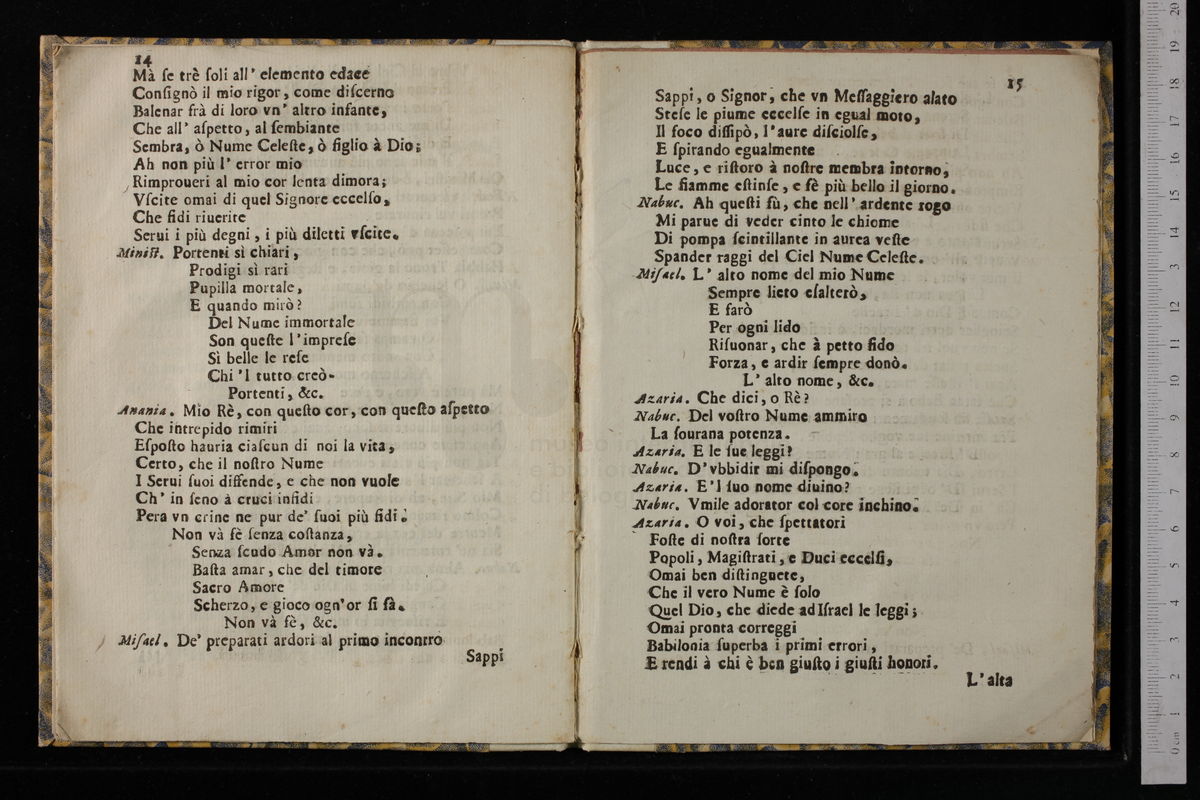 14
Mà ſe trè ſoli all' elemento edace
Conſignò il mio rigor, come diſcerno
Balenar frà di loro vn' altro infante,
Che all' aſpetto, al ſembiante
Sembra, ò Nume Celeſte, ò figlio à Dio;
Ah non più l' error mio
Rimproueri al mio cor lenta dimora;
Vſcite omai di quel Signore eccelſo,
Che fidi riuerite
Serui i più degni, i più diletti vſcite.
Miniſt. Portenti sì chiari,
Prodigi sì rari
Pupilla mortale,
E quando mirò?
Del Nume immortale
Son queſte l'impreſe
Sì belle le reſe
Chi 'l tutto creò.
Portenti, &c.
Anania. Mio Rè, con queſto cor, con queſto aſpetto
Che intrepido rimiri
Eſpoſto hauria ciaſcun di noi la vita,
Certo, che il noſtro Nume
I Serui ſuoi diffende, e che non vuole
Ch' in ſeno à cruci infidi
Pera vn crine ne pur de' ſuoi più fidi.
Non và fè ſenza coſtanza,
Senza ſcudo Amor non và.
Baſta amar, che del timore
Sacro Amore
Scherzo, e gioco ogn'or ſi fà.
Non và fè, &c.
Miſael. De' preparati ardori al primo incontro
Sappi
15
Sappi, o Signor, che vn Meſſaggiero alato
Steſe le piume eccelſe in egual moto,
Il foco diſſipò, l'aure diſciolſe,
E ſpirando egualmente
Luce, e riſtoro à noſtre membra intorno,
Le fiamme eſtinſe, e fè più bello il giorno.
Nabuc. Ah queſti fù, che nell' ardente rogo
Mi parue di veder cinto le chiome
Di pompa ſcintillante in aurea veſte
Spander raggi del Ciel Nume Celeſte.
Miſael. L' alto nome del mio Nume
Sempre lieto eſalterò,
E farò
Per ogni lido
Riſuonar, che à petto fido
Forza, e ardir ſempre donò.
L' alto nome, &c.
Azaria. Che dici, o Rè?
Nabuc. Del voſtro Nume ammiro
La ſourana potenza.
Azaria. E le ſue leggi?
Nabuc. D'vbbidir mi diſpongo.
Azaria. E'l ſuo nome diuino?
Nabuc. Vmile adorator col core inchino.
Azaria. O voi, che ſpettatori
Foſte di noſtra ſorte
Popoli, Magiſtrati, e Duci eccelſi,
Omai ben diſtinguete,
Che il vero Nume è ſolo
Quel Dio, che diede ad Iſrael le leggi;
Omai pronta correggi
Babilonia ſuperba i primi errori,
E rendi à chi è ben giuſto i giuſti honori.
L'alta